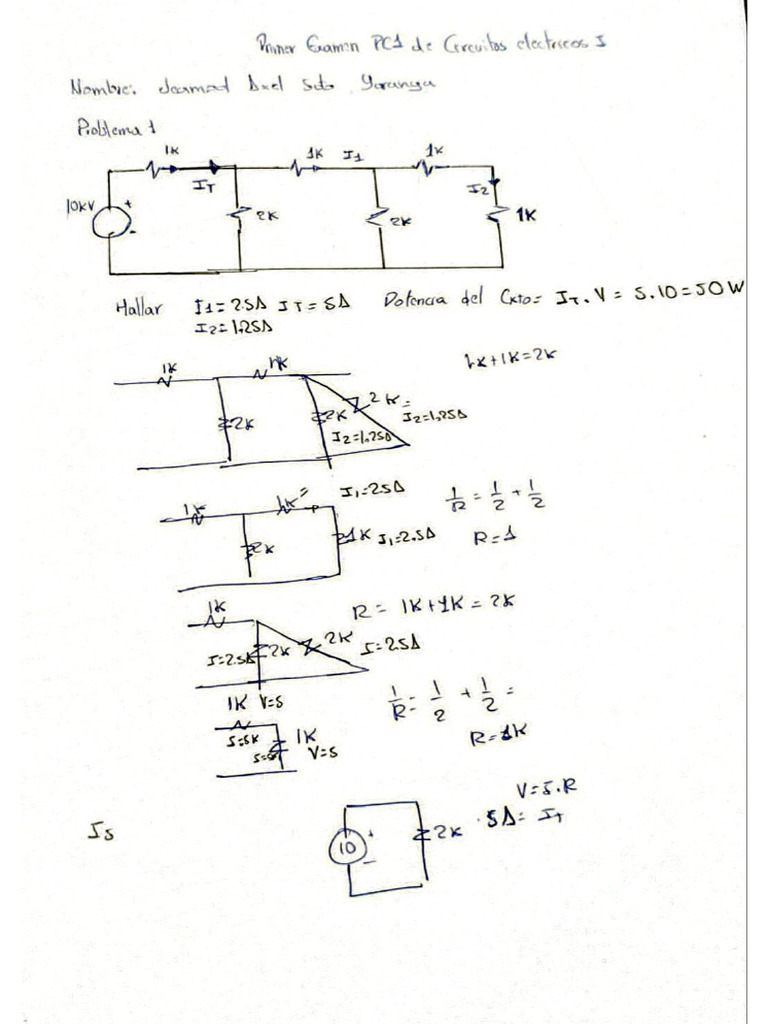 Primer Examen PC1 de Circuitos electricos I
Nombre: Axel Soto Yaranga
Problema 1
1K
1K I1 1K
IT I2
10KV + - 2K 2K 1K
Hallar I1=2.5A IT=5A Potencia del Cxto= IT.V = 5.10=50W
I2=1.25A
1K 1K 1K+1K=2K
2K 2K 2K= I2=1.25A
I2=1.25A
1K 1K= I1=2.5A 1/R = 1/2 + 1/2
2K 1K I1=2.5A R=1
1K R= 1K+1K=2K
I=2.5A 2K 2K I=2.5A
1K V=5 1/R = 1/2 + 1/2 =
5=5K 1K V=5 R=1K
V=5.R
10 + - 2K 5A= IT
Is